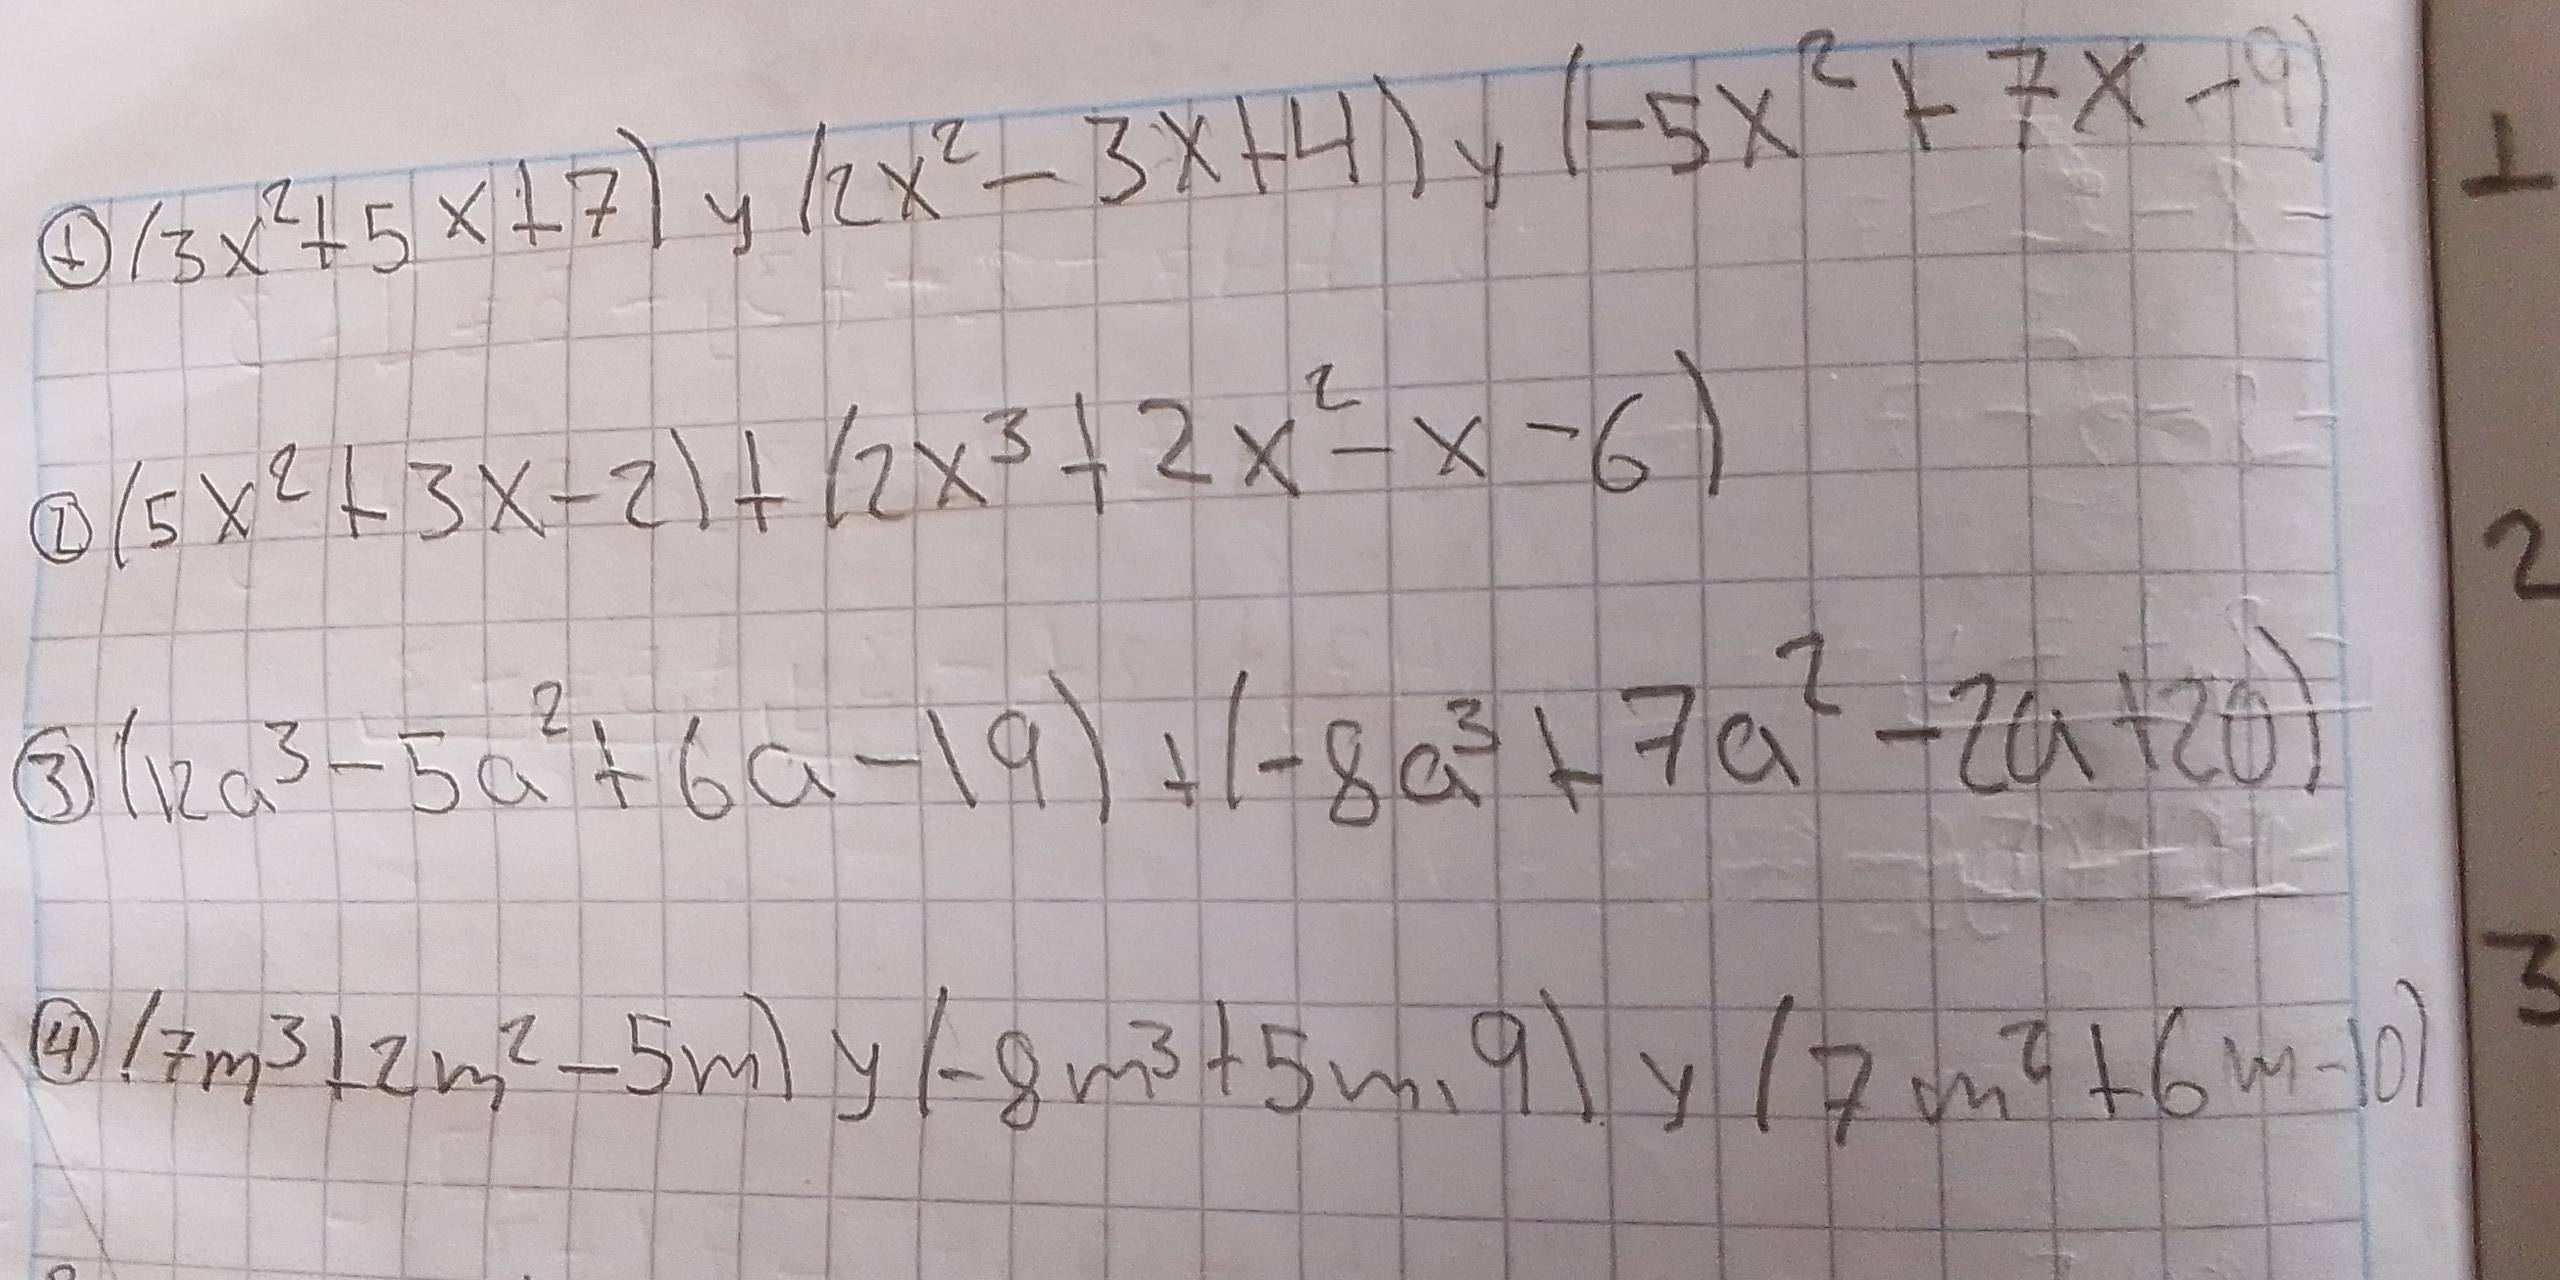 ① (3x²+5x+7) y (2x²-3x+4) y (-5x²+7x-9)
② (5x²+3x-2)+(2x³+2x²-x-6)
③ (12a³-5a²+6a-19)+(-8a³+7a²-2a+20)
④ (7m³+2m²-5m) y (-8m³+5m, 9) y (7m²+6m-10)
1
2
3